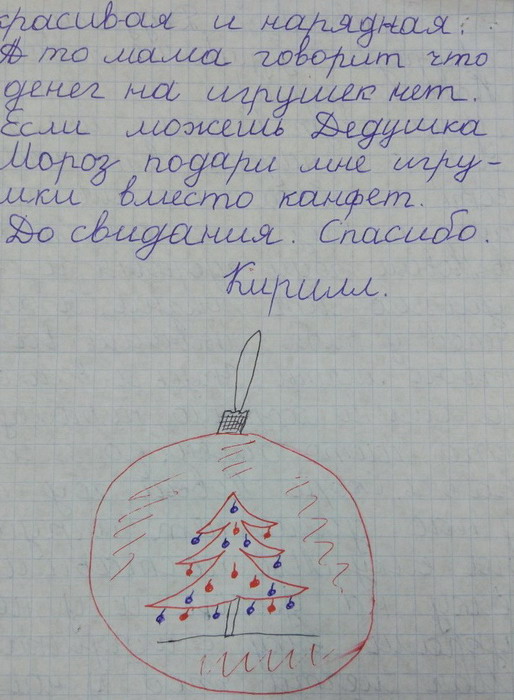 красивая и нарядная.
А то мама говорит что
денег на игрушек нет.
Если можешь Дедушка
Мороз подари мне игру-
шки вместо канфет.
До свидания. Спасибо.
Кирилл.